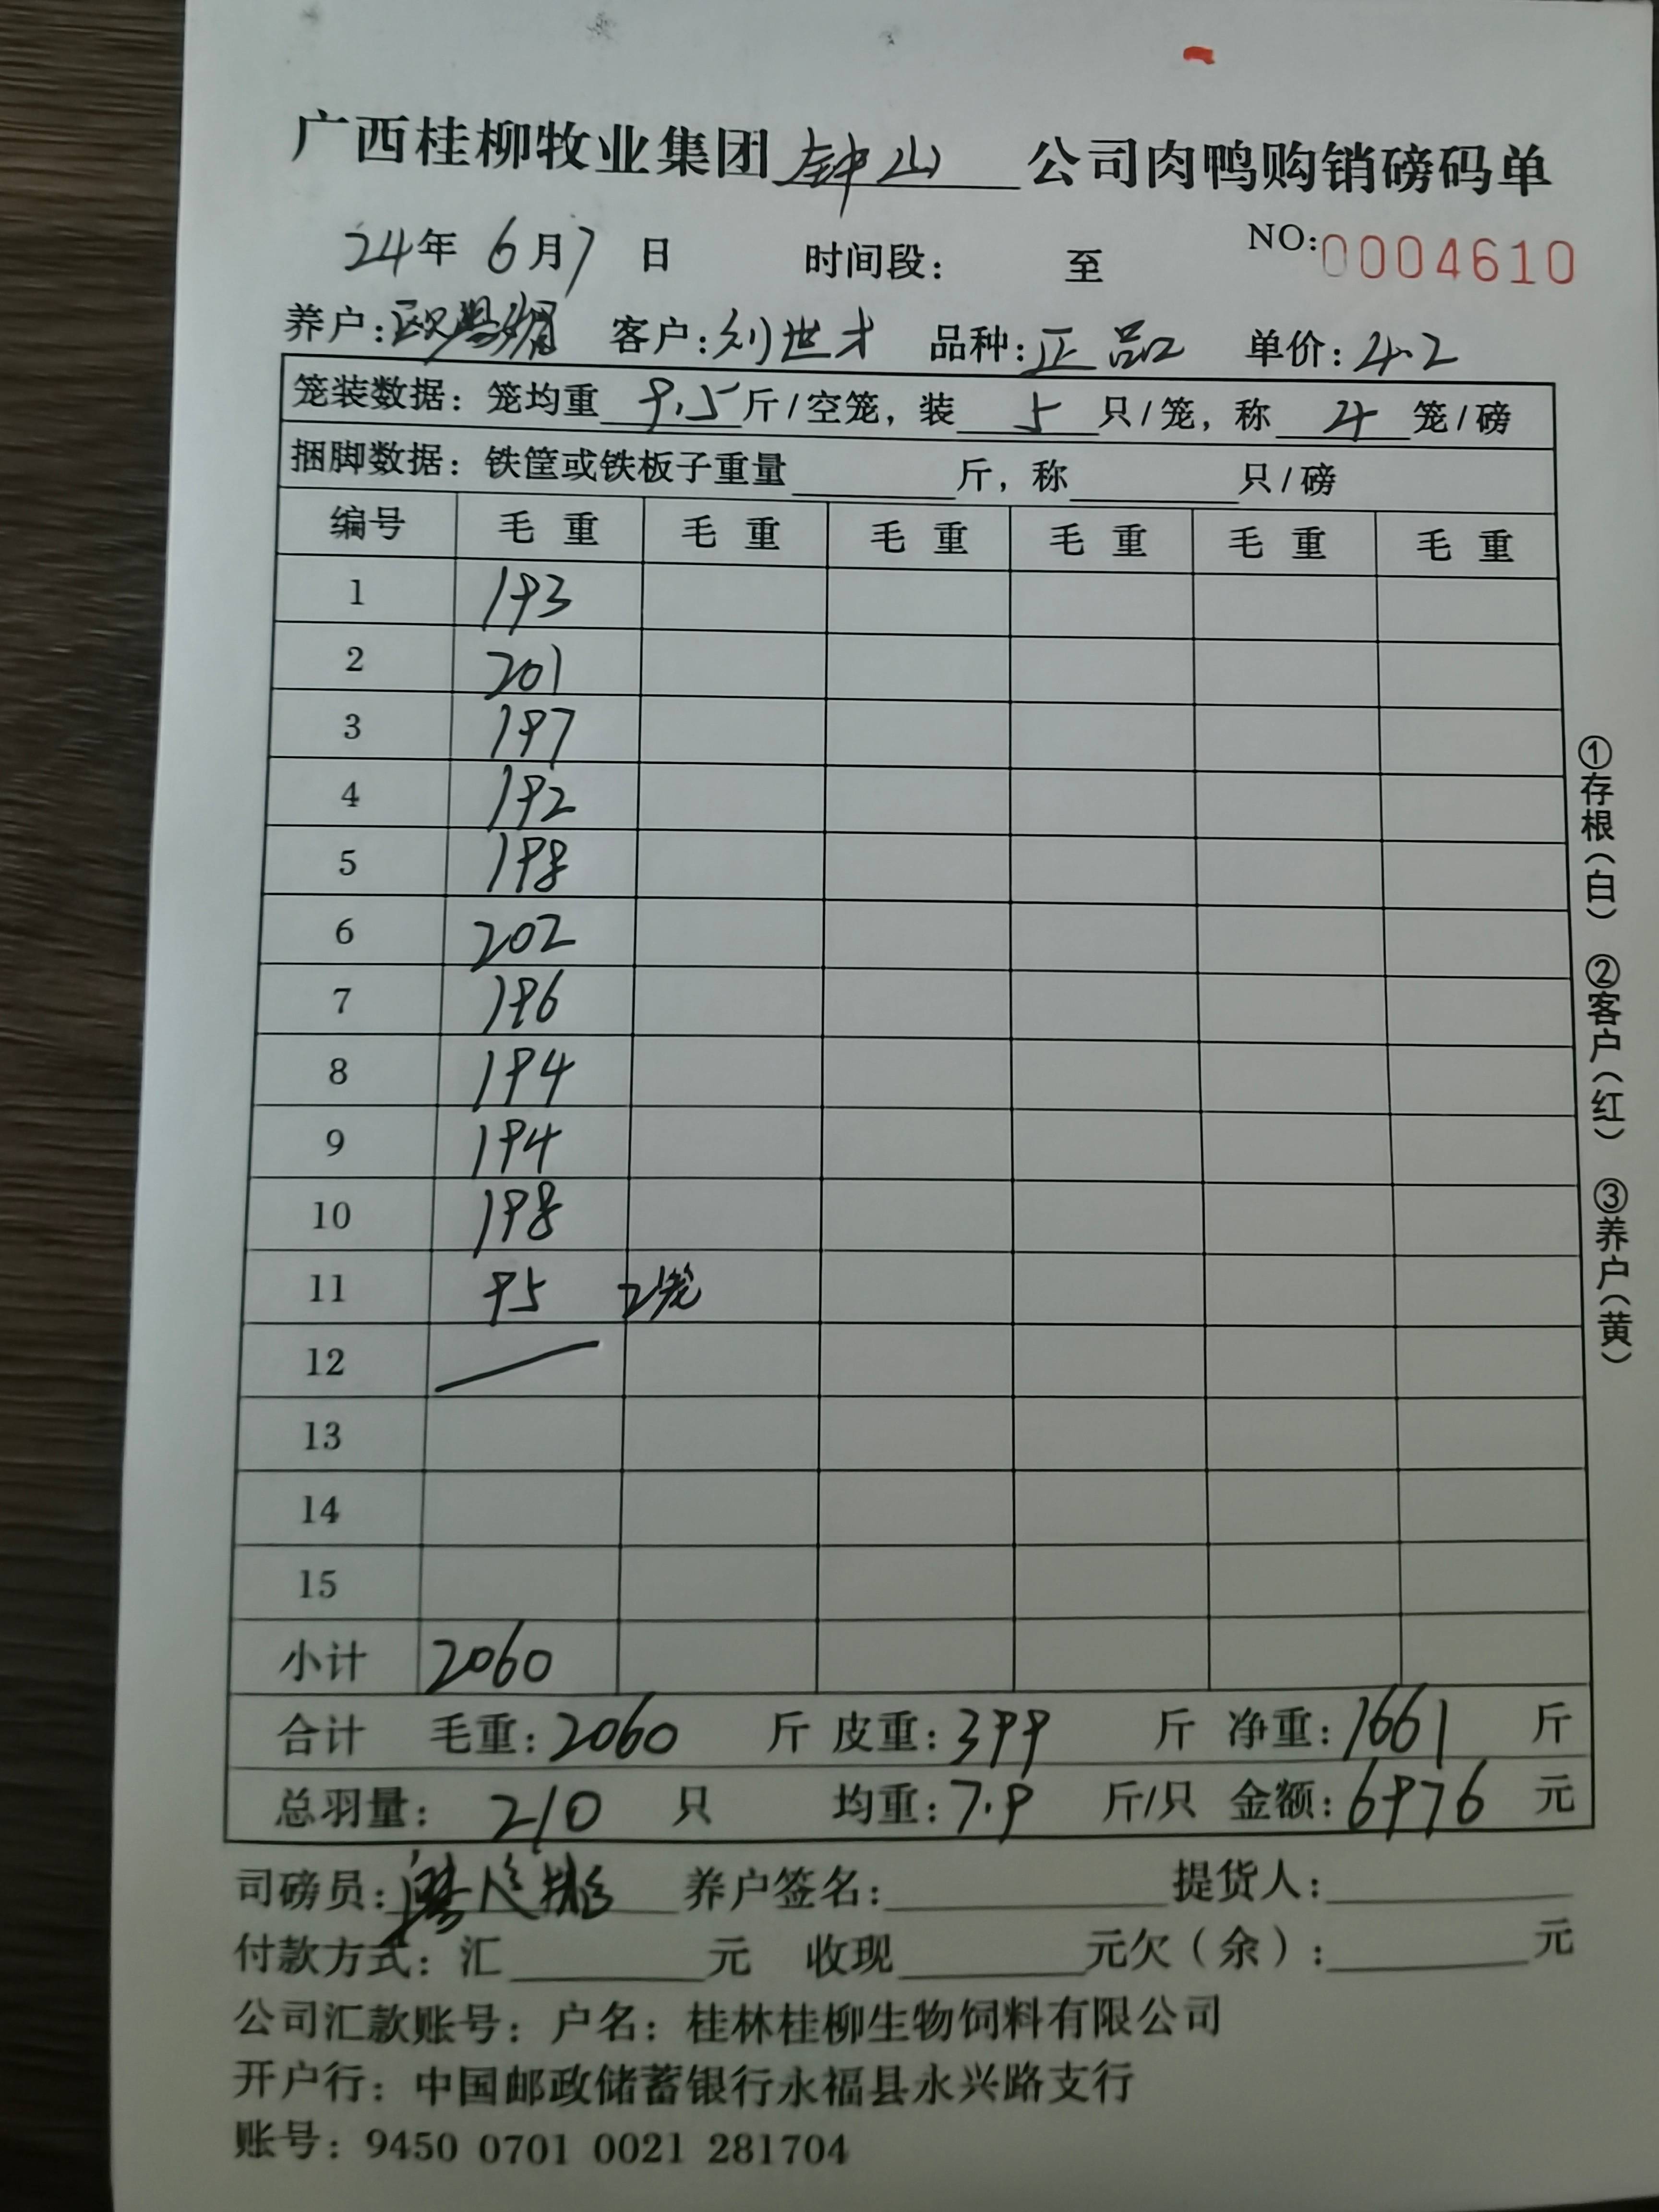 广西桂柳牧业集团钟山公司肉鸭购销磅码单
24年 6月7日 时间段: 至 NO:0004610
养户: 客户:刘世才 品种:正品 单价:4.2
笼装数据:笼均重 9.5 斤/空笼,装 5 只/笼,称 4 笼/磅
捆脚数据:铁筐或铁板子重量 斤,称 只/磅
编号 毛重 毛重 毛重 毛重 毛重 毛重
1 193
2 201
3 197
4 192
5 198
6 202
7 196
8 194
9 194
10 198
11 95 2笼
12
13
14
15
小计 2060
合计 毛重:2060 斤 皮重:399 斤 净重:1661 斤
总羽量: 210 只 均重:7.9 斤/只 金额:6976 元
司磅员: 养户签名: 提货人:
付款方式:汇 元 收现 元欠(余): 元
公司汇款账号:户名:桂林桂柳生物饲料有限公司
开户行:中国邮政储蓄银行永福县永兴路支行
账号:9450 0701 0021 281704
①存根(白) ②客户(红) ③养户(黄)